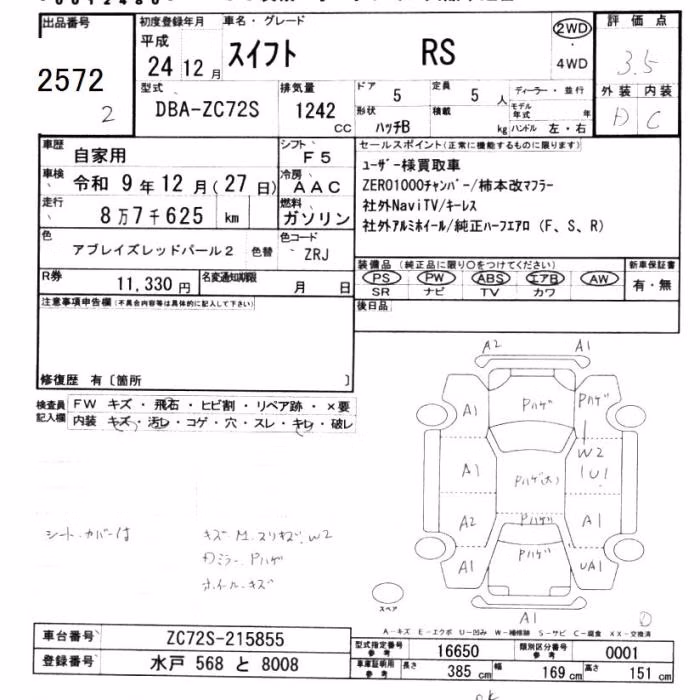 出品番号
2572
2
初度登録年月
平成
24年12月
車名・グレード
スイフト RS
2WD
・
4WD
評価点
3.5
外装 内装
D C
型式
DBA-ZC72S
排気量
1242
CC
ドア 5
定員 5人
形状
ハッチB
積載
kg
ディーラー・並行
モデル年式 年
ハンドル 左・右
車歴 自家用
車検 令和 9年12月(27日)
走行 8万7千625 km
色 アブレイズレッドパール2 色替
シフト F5
冷房 AAC
燃料 ガソリン
色コード ZRJ
R券 11,330円
名変通知期限 月 日
セールスポイント(正常に機能するものに限ります)
ユーザー様買取車
ZERO1000チャンバー/柿本改マフラー
社外NaviTV/キーレス
社外アルミホイール/純正ハーフエアロ (F、S、R)
装備品 (純正品に限り○をつけてください)
PS PW ABS エアB AW
SR ナビ TV カワ
新車保証書
有・無
後日品
注意事項申告欄(不具合内容等は具体的に記入して下さい)
修復歴 有〔箇所 〕
検査員記入欄
FW キズ・飛石・ヒビ割・リペア跡・×要
内装 キズ・汚レ・コゲ・穴・スレ・キレ・破レ
シートカバー付
キズ M.スリキズ.W2
Dミラー.Pハゲ
ホイール.キズ
A2 A1
A1 Pハゲ Pハゲ
W2
A1 Pハゲ(大) U1
A2 Pハゲ A1
A1 Pハゲ UA1
A1
スペア
A-キズ E-エクボ U-凹み W-補修跡 S-サビ C-腐食 XX-交換済
車台番号 ZC72S-215855
登録番号 水戸 568 と 8008
型式指定番号 参考 16650
類別区分番号 参考 0001
車庫証明用 参考 長さ 385cm 幅 169cm 高さ 151cm